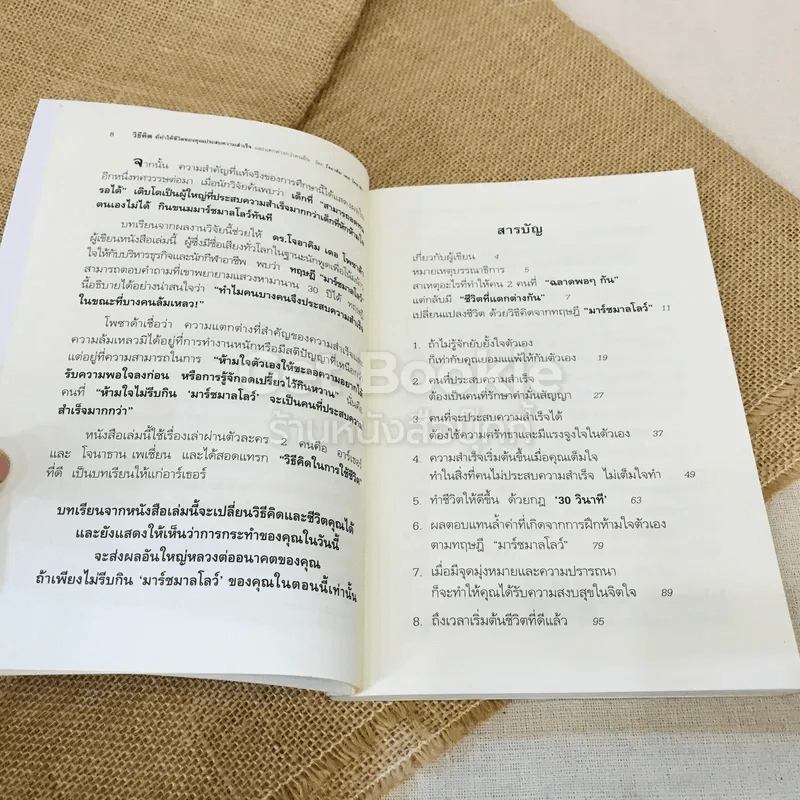 8 วิธีคิด ที่ทำให้ชีวิตของคุณประสบความสำเร็จ
จากนั้น ความสำคัญที่แท้จริงของการศึกษานี้ได้แสดงผลใน
อีกหนึ่งทศวรรษต่อมา เมื่อนักวิจัยค้นพบว่า เด็กที่ "สามารถอดทน
รอได้" เติบโตเป็นผู้ใหญ่ที่ประสบความสำเร็จมากกว่าเด็กที่หักห้ามใจ
ตนเองไม่ได้ กินขนมมาร์ชมาลโลว์ทันที
บทเรียนจากผลงานวิจัยนี้ช่วยให้ ดร.โจอาคิม เดอ โพซาด้า
ผู้เขียนหนังสือเล่มนี้ ผู้ซึ่งมีชื่อเสียงทั่วโลกในฐานะนักพูดเพื่อโน้มน้าว
ใจให้กับบริหารธุรกิจและนักกีฬาอาชีพ พบว่า ทฤษฎี "มาร์ชมาลโลว์"
สามารถตอบคำถามที่เขาพยายามแสวงหามานาน 30 ปีได้ ทฤษฎี
นี้อธิบายได้อย่างน่าสนใจว่า "ทำไมคนบางคนจึงประสบความสำเร็จ
ในขณะที่บางคนล้มเหลว!"
โพซาด้าเชื่อว่า ความแตกต่างที่สำคัญของความสำเร็จและ
ความล้มเหลวมิได้อยู่ที่การทำงานหนักหรือมีสติปัญญาที่เหนือกว่า
แต่อยู่ที่ความสามารถในการ "ห้ามใจตัวเองให้ชะลอความอยากได้
รับความพอใจลงก่อน หรือการรู้จักอดเปรี้ยวไว้กินหวาน" นั่นคือ
คนที่ "ห้ามใจไม่รีบกิน 'มาร์ชมาลโลว์' จะเป็นคนที่ประสบความ
สำเร็จมากกว่า"
หนังสือเล่มนี้ใช้เรื่องเล่าผ่านตัวละคร 2 คนคือ อาร์เธอร์
และ โจนาธาน เพเชี่ยน และได้สอดแทรก "วิธีคิดในการใช้ชีวิต"
ที่ดี เป็นบทเรียนให้แก่อาร์เธอร์
บทเรียนจากหนังสือเล่มนี้จะเปลี่ยนวิธีคิดและชีวิตคุณได้
และยังแสดงให้เห็นว่าการกระทำของคุณในวันนี้
จะส่งผลอันใหญ่หลวงต่ออนาคตของคุณ
ถ้าเพียงไม่รีบกิน 'มาร์ชมาลโลว์' ของคุณในตอนนี้เท่านั้น
สารบัญ
เกี่ยวกับผู้เขียน 4
หมายเหตุบรรณาธิการ 5
สาเหตุอะไรที่ทำให้คน 2 คนที่ "ฉลาดพอๆ กัน"
แต่กลับมี "ชีวิตที่แตกต่างกัน" 7
เปลี่ยนแปลงชีวิต ด้วยวิธีคิดจากทฤษฎี "มาร์ชมาลโลว์" 11
1. ถ้าไม่รู้จักยับยั้งใจตัวเอง
ก็เท่ากับคุณยอมแพ้ให้กับตัวเอง 19
2. คนที่ประสบความสำเร็จ
ต้องเป็นคนที่รักษาคำมั่นสัญญา 27
3. คนที่จะประสบความสำเร็จได้
ต้องใช้ความศรัทธาและมีแรงจูงใจในตัวเอง 37
4. ความสำเร็จเริ่มต้นขึ้นเมื่อคุณเต็มใจ
ทำในสิ่งที่คนไม่ประสบความสำเร็จ ไม่เต็มใจทำ 49
5. ทำชีวิตให้ดีขึ้น ด้วยกฎ '30 วินาที' 63
6. ผลตอบแทนล้ำค่าที่เกิดจากการฝึกห้ามใจตัวเอง
ตามทฤษฎี "มาร์ชมาลโลว์" 79
7. เมื่อมีจุดมุ่งหมายและความปรารถนา
ก็จะทำให้คุณได้รับความสงบสุขในจิตใจ 89
8. ถึงเวลาเริ่มต้นชีวิตที่ดีแล้ว 95